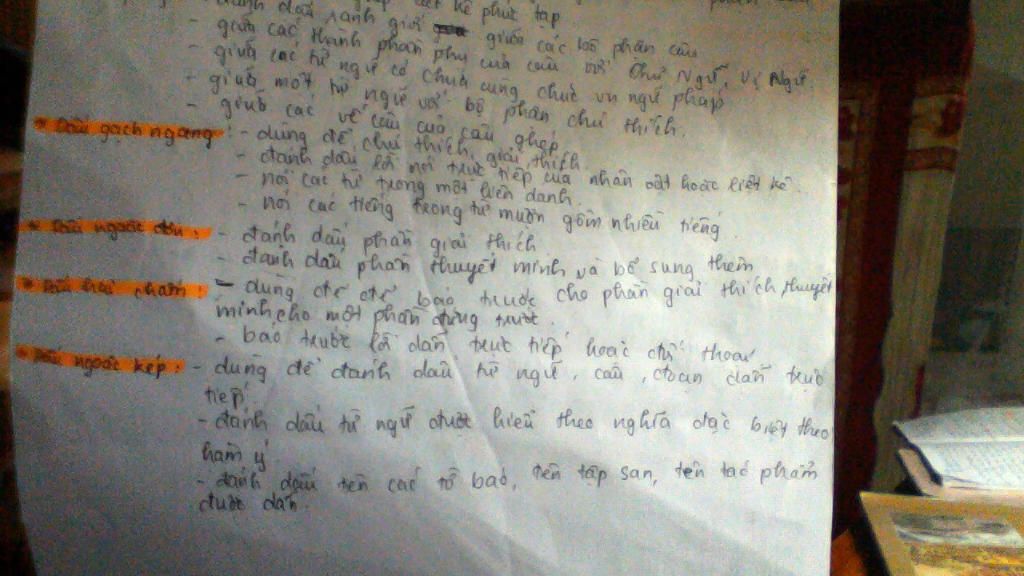 liệt kê phức tạp
đánh dấu ranh giới giữa các bộ phận câu
- giữa các thành phần phụ của câu với Chủ Ngữ, Vị Ngữ.
- giữa các từ ngữ có chung chức vụ ngữ pháp
- giữa một từ ngữ với bộ phận chú thích.
- giữa các vế câu của câu ghép
* Dấu gạch ngang: - dùng để chú thích, giải thích
- đánh dấu lời nói trực tiếp của nhân vật hoặc liệt kê.
- nối các từ trong một liên danh.
- nối các tiếng trong từ mượn gồm nhiều tiếng.
* Dấu ngoặc đơn: - đánh dấu phần giải thích
- đánh dấu phần thuyết minh và bổ sung thêm
* Dấu hai chấm: - dùng để để báo trước cho phần giải thích thuyết
minh cho một phần đứng trước.
- báo trước lời dẫn trực tiếp hoặc đối thoại
* Dấu ngoặc kép: - dùng để đánh dấu từ ngữ, câu, đoạn dẫn trực
tiếp.
- đánh dấu từ ngữ được hiểu theo nghĩa đặc biệt theo
hàm ý
- đánh dấu tên các tờ báo, tên tập san, tên tác phẩm
được dẫn.